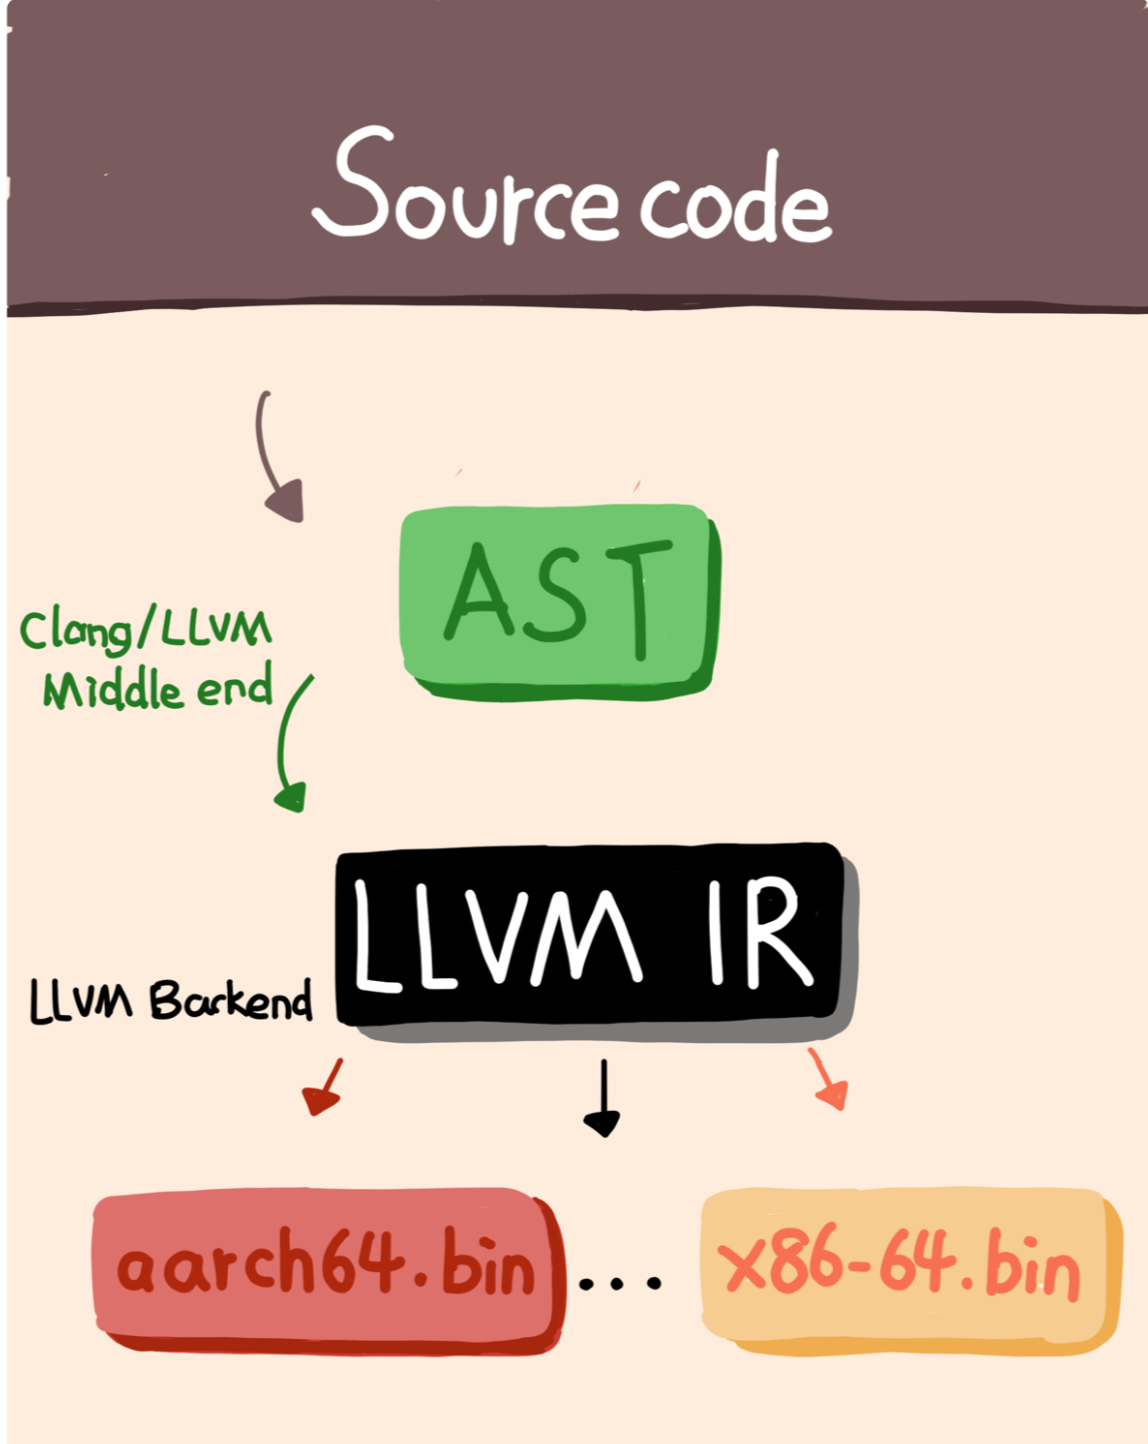 Source code
AST
Clang/LLVM
Middle end
LLVM IR
LLVM Backend
aarch64.bin ... x86-64.bin